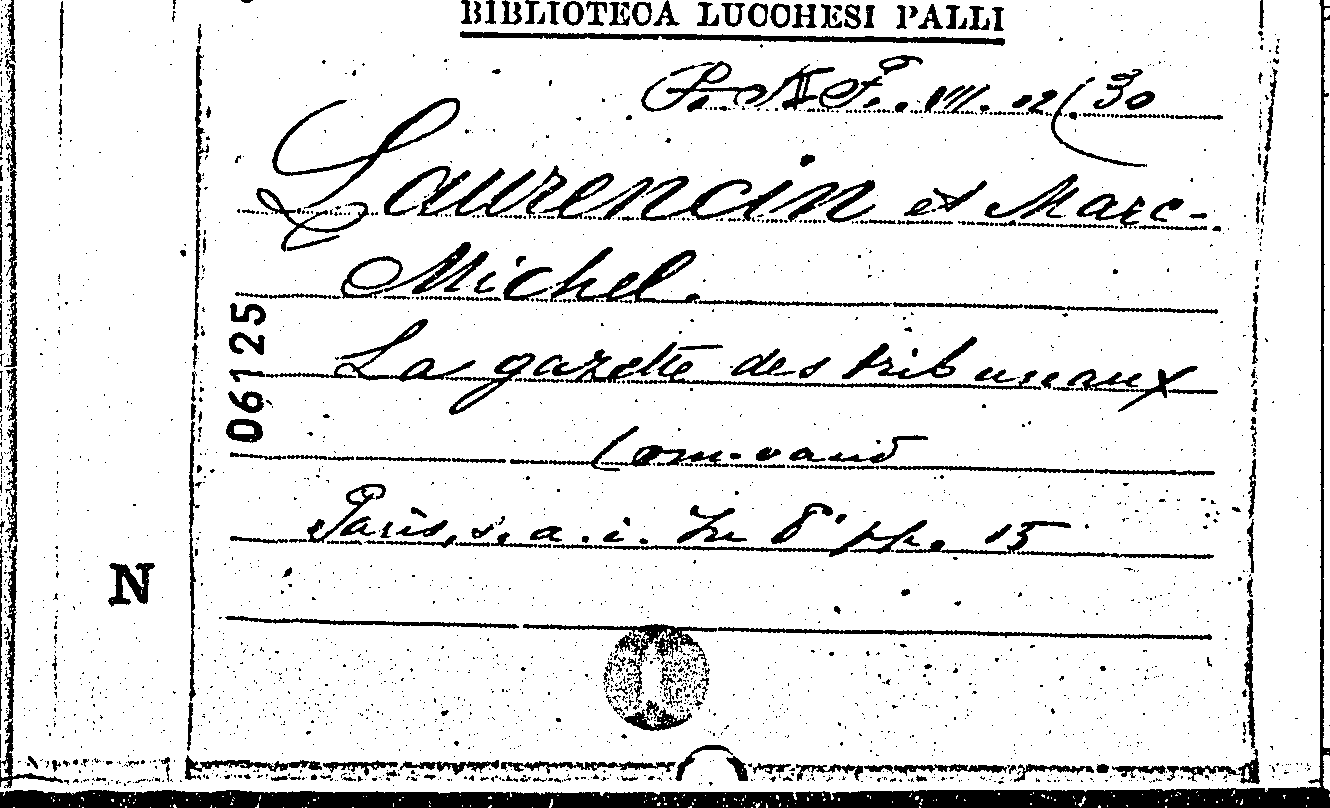 BIBLIOTECA LUCCHESI PALLI
VIII. 02(30
Laurencin et Marc-
Michel.
La gazette des tribunaux
Com-vaud
Paris, s. a. i. In 8° pp. 15
06125
N